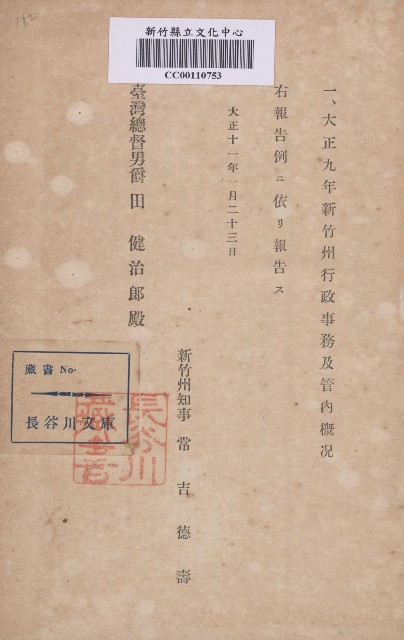 162
新竹縣立文化中心
CC00110753
一、大正九年新竹州行政事務及管內概況
右報告例ニ依リ報告ス
大正十一年一月二十三日
臺灣總督男爵 田 健治郎殿
新竹州知事 常吉德壽
藏書 No.
長谷川文庫
長谷川
藏書